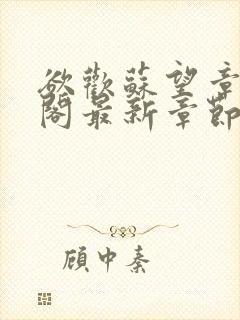 欲歡蘇望章
閣最新章節
顧中秦